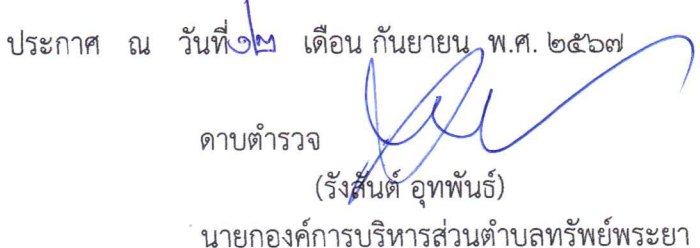 ประกาศ ณ วันที่ ๑๒ เดือน กันยายน พ.ศ. ๒๕๖๗
ดาบตำรวจ
(รังสันต์ อุทพันธ์)
นายกองค์การบริหารส่วนตำบลทรัพย์พระยา